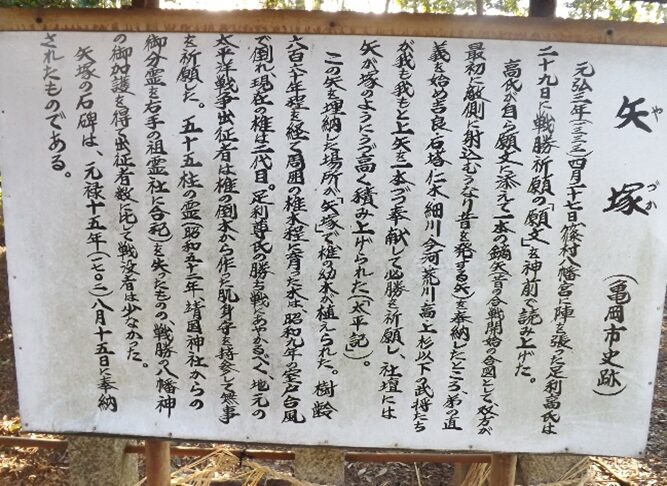 矢塚
やづか
(亀岡市史跡)
元弘三年(一三三三)四月二十七日篠村八幡宮に陣を張った足利高氏は
二十九日に戦勝祈願の「願文」を神前で読み上げた。
高氏が自ら願文に添えて一本の鏑矢(昔の合戦開始の合図として、双方が
最初に敵側に射込むうなり音を発する矢)を奉納したところ、弟の直
義を始め吉良石塔仁木細川今河荒川高上杉以下の武将たち
が我も我もと上矢を一本づつ奉献して必勝を祈願し、社壇には
矢が塚のようにうづ高く積み上げられた(「太平記」)。
この矢を埋納した場所が「矢塚」で椎の幼木が植えられた。樹齢
六百六十年程を経て周囲の椎木程に育った木は、昭和九年の室戸台風
で倒れ、現在の椎は二代目。足利尊氏の勝ち戦にあやかるべく、地元の
太平洋戦争出征者は椎の倒木から作た肌身守を持参して無事
を祈願した。五十五柱の霊(昭和五十二年靖国神社からの
御分霊を右手の祖霊社に合祀)を失ったものの、戦勝の八幡神
の御加護を得て出征者数に比して戦没者は少なかった。
矢塚の石碑は、元禄十五年(一七〇二)八月十五日に奉納
されたものである。